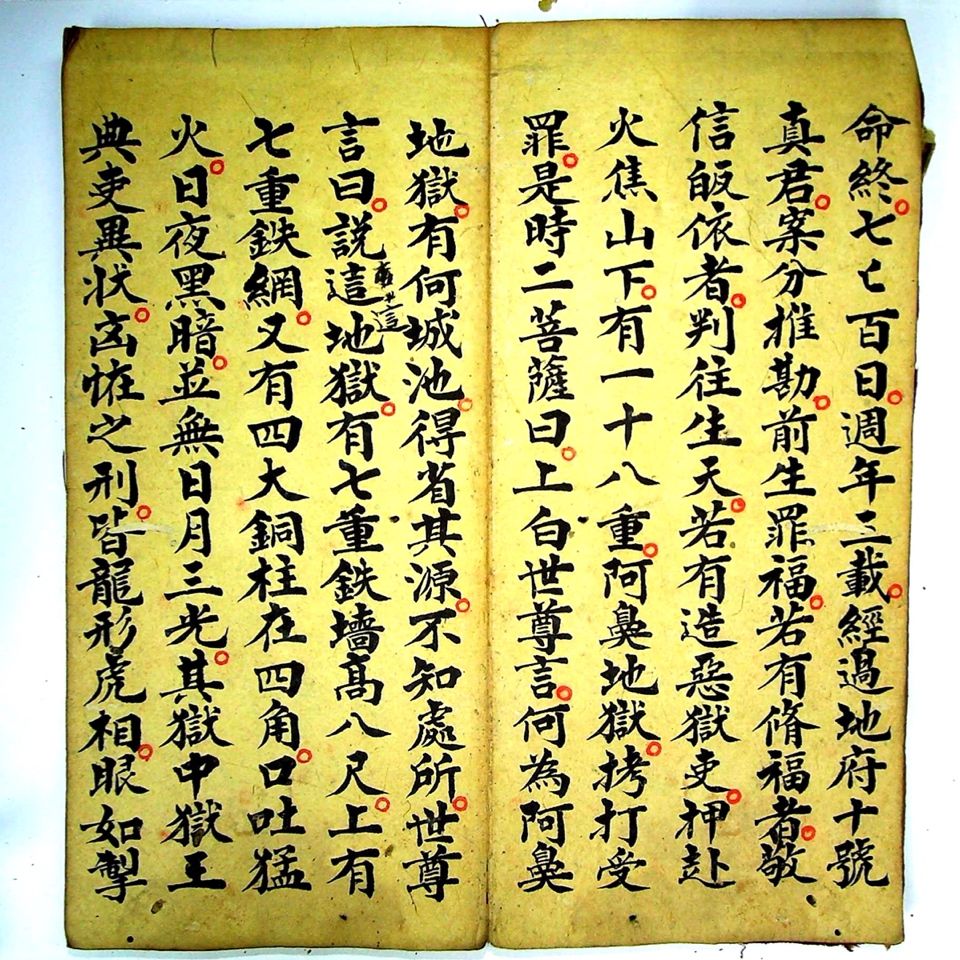 命終七七百日週年三載經過地府十號
真君案分推勘前生罪福若有脩福者敬
信皈依者判往生天若有造惡獄吏押赴
火焦山下有一十八重阿鼻地獄拷打受
罪是時二菩薩曰上白世尊言何為阿鼻
地獄有何城池得省其源不知處所世尊
言曰說這地獄有七重鉄墻高八尺上有
七重鉄網又有四大銅柱在四角口吐猛
火日夜黑暗並無日月三光其獄中獄王
典吏異状凶恠之刑皆龍形虎相眼如掣